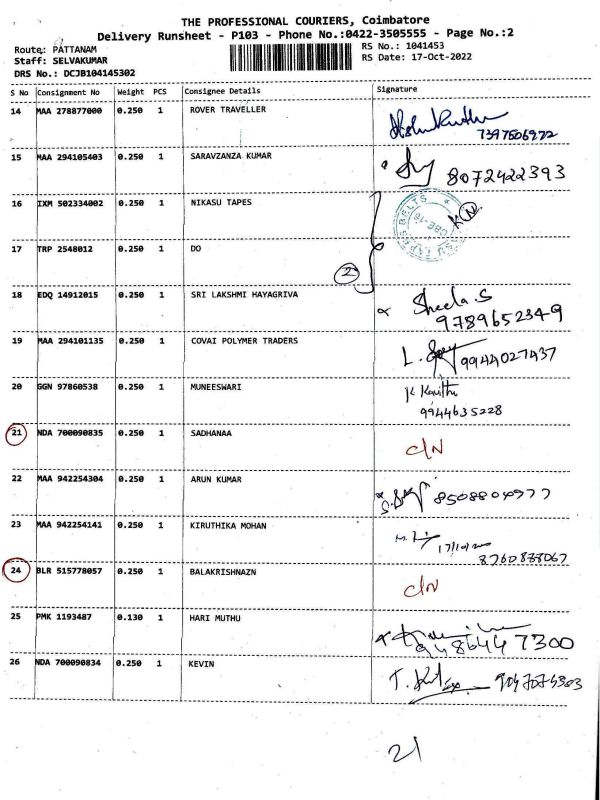 THE PROFESSIONAL COURIERS, Coimbatore
Delivery Runsheet - P103 - Phone No.:0422-3505555 - Page No.:2
Route: PATTANAM
RS No.: 1041453
Staff: SELVAKUMAR
RS Date: 17-Oct-2022
DRS No.: DCJB104145302
S No Consignment No Weight PCS Consignee Details Signature
14 MAA 278877000 0.250 1 ROVER TRAVELLER
7397506972
15 MAA 294105403 0.250 1 SARAVZANZA KUMAR
8072422393
16 IXM 502334002 0.250 1 NIKASU TAPES
17 TRP 2548012 0.250 1 DO
2
18 EDQ 14912015 0.250 1 SRI LAKSHMI HAYAGRIVA Sheela.S
9789652349
19 MAA 294101135 0.250 1 COVAI POLYMER TRADERS
9944027437
20 GGN 97860538 0.250 1 MUNEESWARI K Kavitha
9944635228
21 NDA 700090835 0.250 1 SADHANAA C/N
22 MAA 942254304 0.250 1 ARUN KUMAR 8508804977
23 MAA 942254141 0.250 1 KIRUTHIKA MOHAN
8760888067
24 BLR 515778057 0.250 1 BALAKRISHNAZN C/N
25 PMK 1193487 0.130 1 HARI MUTHU
9486447300
26 NDA 700090834 0.250 1 KEVIN 9047074303
21